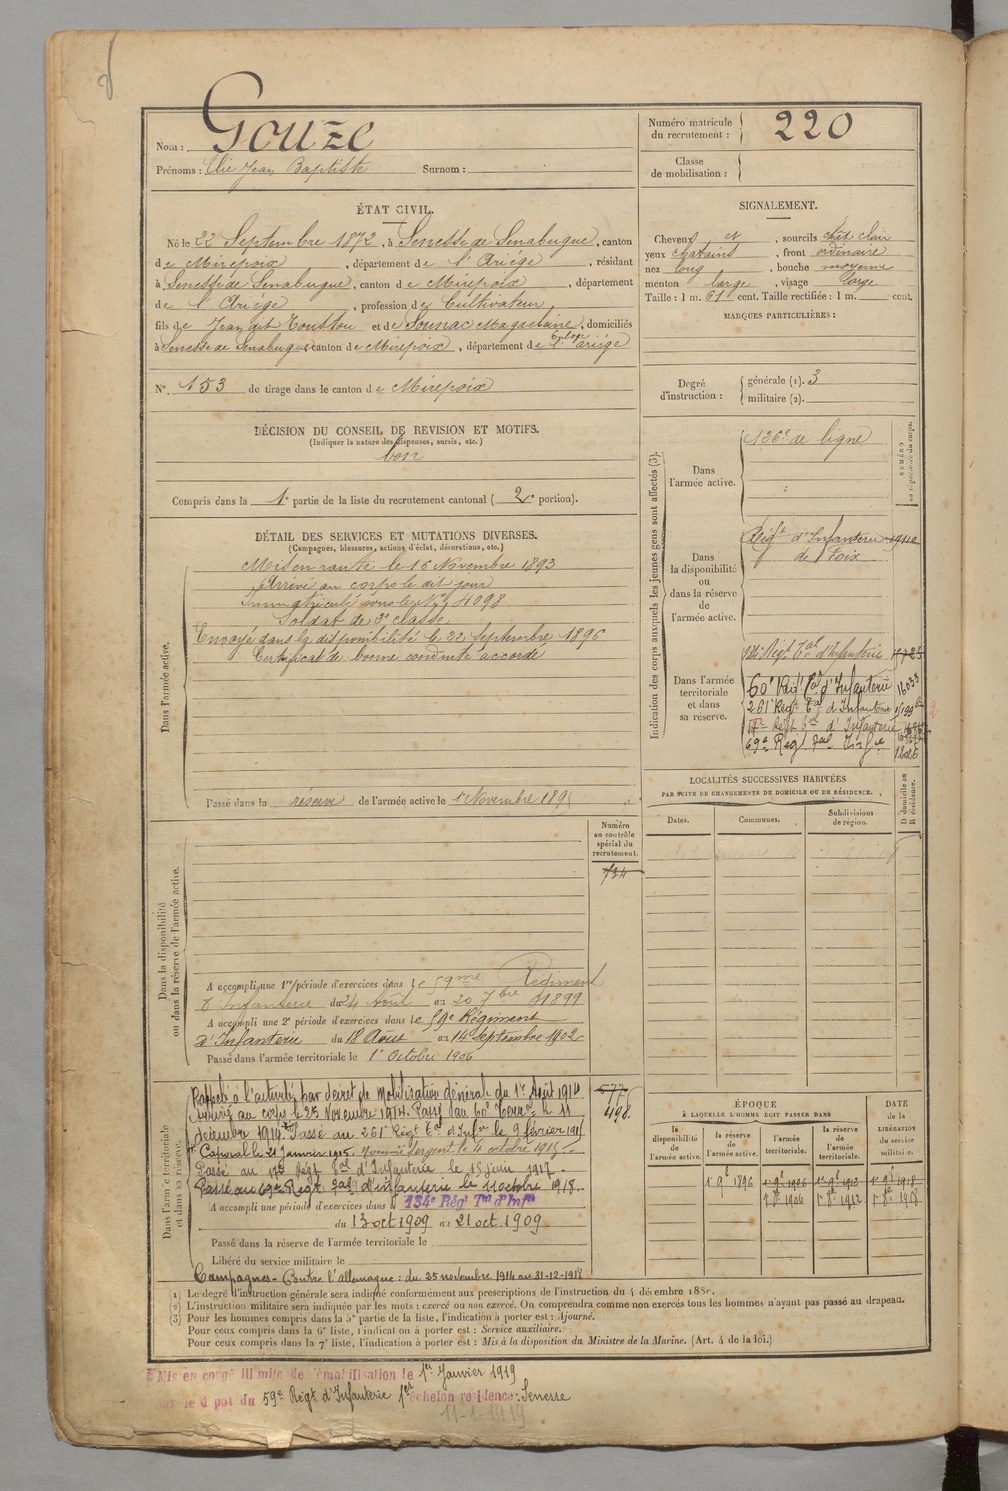 Nom : Gouze
Prénoms : Elie Jean Baptiste Surnom :
Numéro matricule du recrutement : 220
Classe de mobilisation :
ÉTAT CIVIL.
Né le 22 Septembre 1872, à Senesse de Senabugue, canton
de Mirepoix, département de l'Ariége, résidant
à Senesse de Senabugue, canton de Mirepoix, département
de l'Ariége, profession de Cultivateur
fils de Jean dit Touston et de Sounac Magdelaine, domiciliés
à Senesse de Senabugue canton de Mirepoix, département de l'ariége
N° 153 de tirage dans le canton de Mirepoix
SIGNALEMENT.
Cheveux et, sourcils chat clair
yeux chatains, front ordinaire
nez long, bouche moyenne
menton large, visage large
Taille : 1 m. 61 cent. Taille rectifiée : 1 m. cent.
MARQUES PARTICULIÈRES :
Degré d'instruction : générale (1). 3
militaire (2).
DÉCISION DU CONSEIL DE REVISION ET MOTIFS.
(Indiquer la nature des dispenses, sursis, etc.)
bon
Compris dans la 1e partie de la liste du recrutement cantonal (2e portion).
DÉTAIL DES SERVICES ET MUTATIONS DIVERSES.
(Campagnes, blessures, actions d'éclat, décorations, etc.)
Dans l'armée active.
Mis en route le 16 Novembre 1893
Arrivé au corps le dit jour
Immatriculé sous le N° 4098
Soldat de 2e classe
Envoyé dans la disponibilité le 22 Septembre 1896
Certificat de bonne conduite accordé
Passé dans la réserve de l'armée active le 1 Novembre 189
Indication des corps auxquels les jeunes gens sont affectés (3).
NUMÉRO au répertoire du corps.
Dans l'armée active.
126e de ligne
Dans la disponibilité ou dans la réserve de l'armée active.
Régt d'Infanterie
de Foix
Dans l'armée territoriale et dans sa réserve.
134e Régt Tal d'Infanterie
60e Régt Tal d'Infanterie 16033
261e Régt Tal d'Infanterie
17e Régt Tal d'Infanterie
69e Regt Tal Infie
LOCALITÉS SUCCESSIVES HABITÉES
PAR SUITE DE CHANGEMENTS DE DOMICILE OU DE RÉSIDENCE.
Dates. Communes. Subdivisions de région. D domicile ou R résidence.
Dans la disponibilité ou dans la réserve de l'armée active.
Numéro au contrôle spécial du recrutement.
734
A accompli une 1re période d'exercices dans le 59me Régiment
d'Infanterie du 24 Août au 20 7bre 1899
A accompli une 2e période d'exercices dans le 59e Régiment
d'Infanterie du 18 Août au 14 Septembre 1902
Passé dans l'armée territoriale le 1er Octobre 1906
Dans l'armée territoriale et dans sa réserve.
577
498
Rappelé à l'activité par décret de mobilisation générale du 1er Août 1914
Arrivé au corps le 25 Novembre 1914. Passé au 60e Terral le 11
décembre 1914. Passé au 261e Régt Tal d'Infie le 9 février 1915
Caporal le 21 Janvier 1915. Nommé sergent le 4 octobre 1915
Passé au 17e Régt Tal d'Infanterie le 15 juin 1917
Passé au 69e Régt Tal d'infanterie le 11 octobre 1918
A accompli une période d'exercices dans le 134e Régt Tal d'Infie
du 13 oct 1909 au 21 oct. 1909
Passé dans la réserve de l'armée territoriale le
Libéré du service militaire le
Campagnes - Contre l'allemagne : du 25 novembre 1914 au 31-12-1918
ÉPOQUE
À LAQUELLE L'HOMME DOIT PASSER DANS
DATE de la LIBÉRATION du service militaire.
la disponibilité de l'armée active. la réserve de l'armée active. l'armée territoriale. la réserve de l'armée territoriale.
1er 9e 1896 1er 9e 1906 1er 9e 1912 1er 9e 1918
1er 8e 1906 1er 8e 1912 1er 8e 1918
(1) Le degré d'instruction générale sera indiqué conformément aux prescriptions de l'instruction du 4 décembre 1889.
(2) L'instruction militaire sera indiquée par les mots : exercé ou non exercé. On comprendra comme non exercés tous les hommes n'ayant pas passé au drapeau.
(3) Pour les hommes compris dans la 5e partie de la liste, l'indication à porter est : Ajourné.
Pour ceux compris dans la 6e liste, l'indication à porter est : Service auxiliaire.
Pour ceux compris dans la 7e liste, l'indication à porter est : Mis à la disposition du Ministre de la Marine. (Art. 4 de la loi.)
Mis en congé illimité de démobilisation le 1er Janvier 1919
par le dépôt du 59e Régt d'Infanterie 1er échelon residence : Senesse
11-1-1919